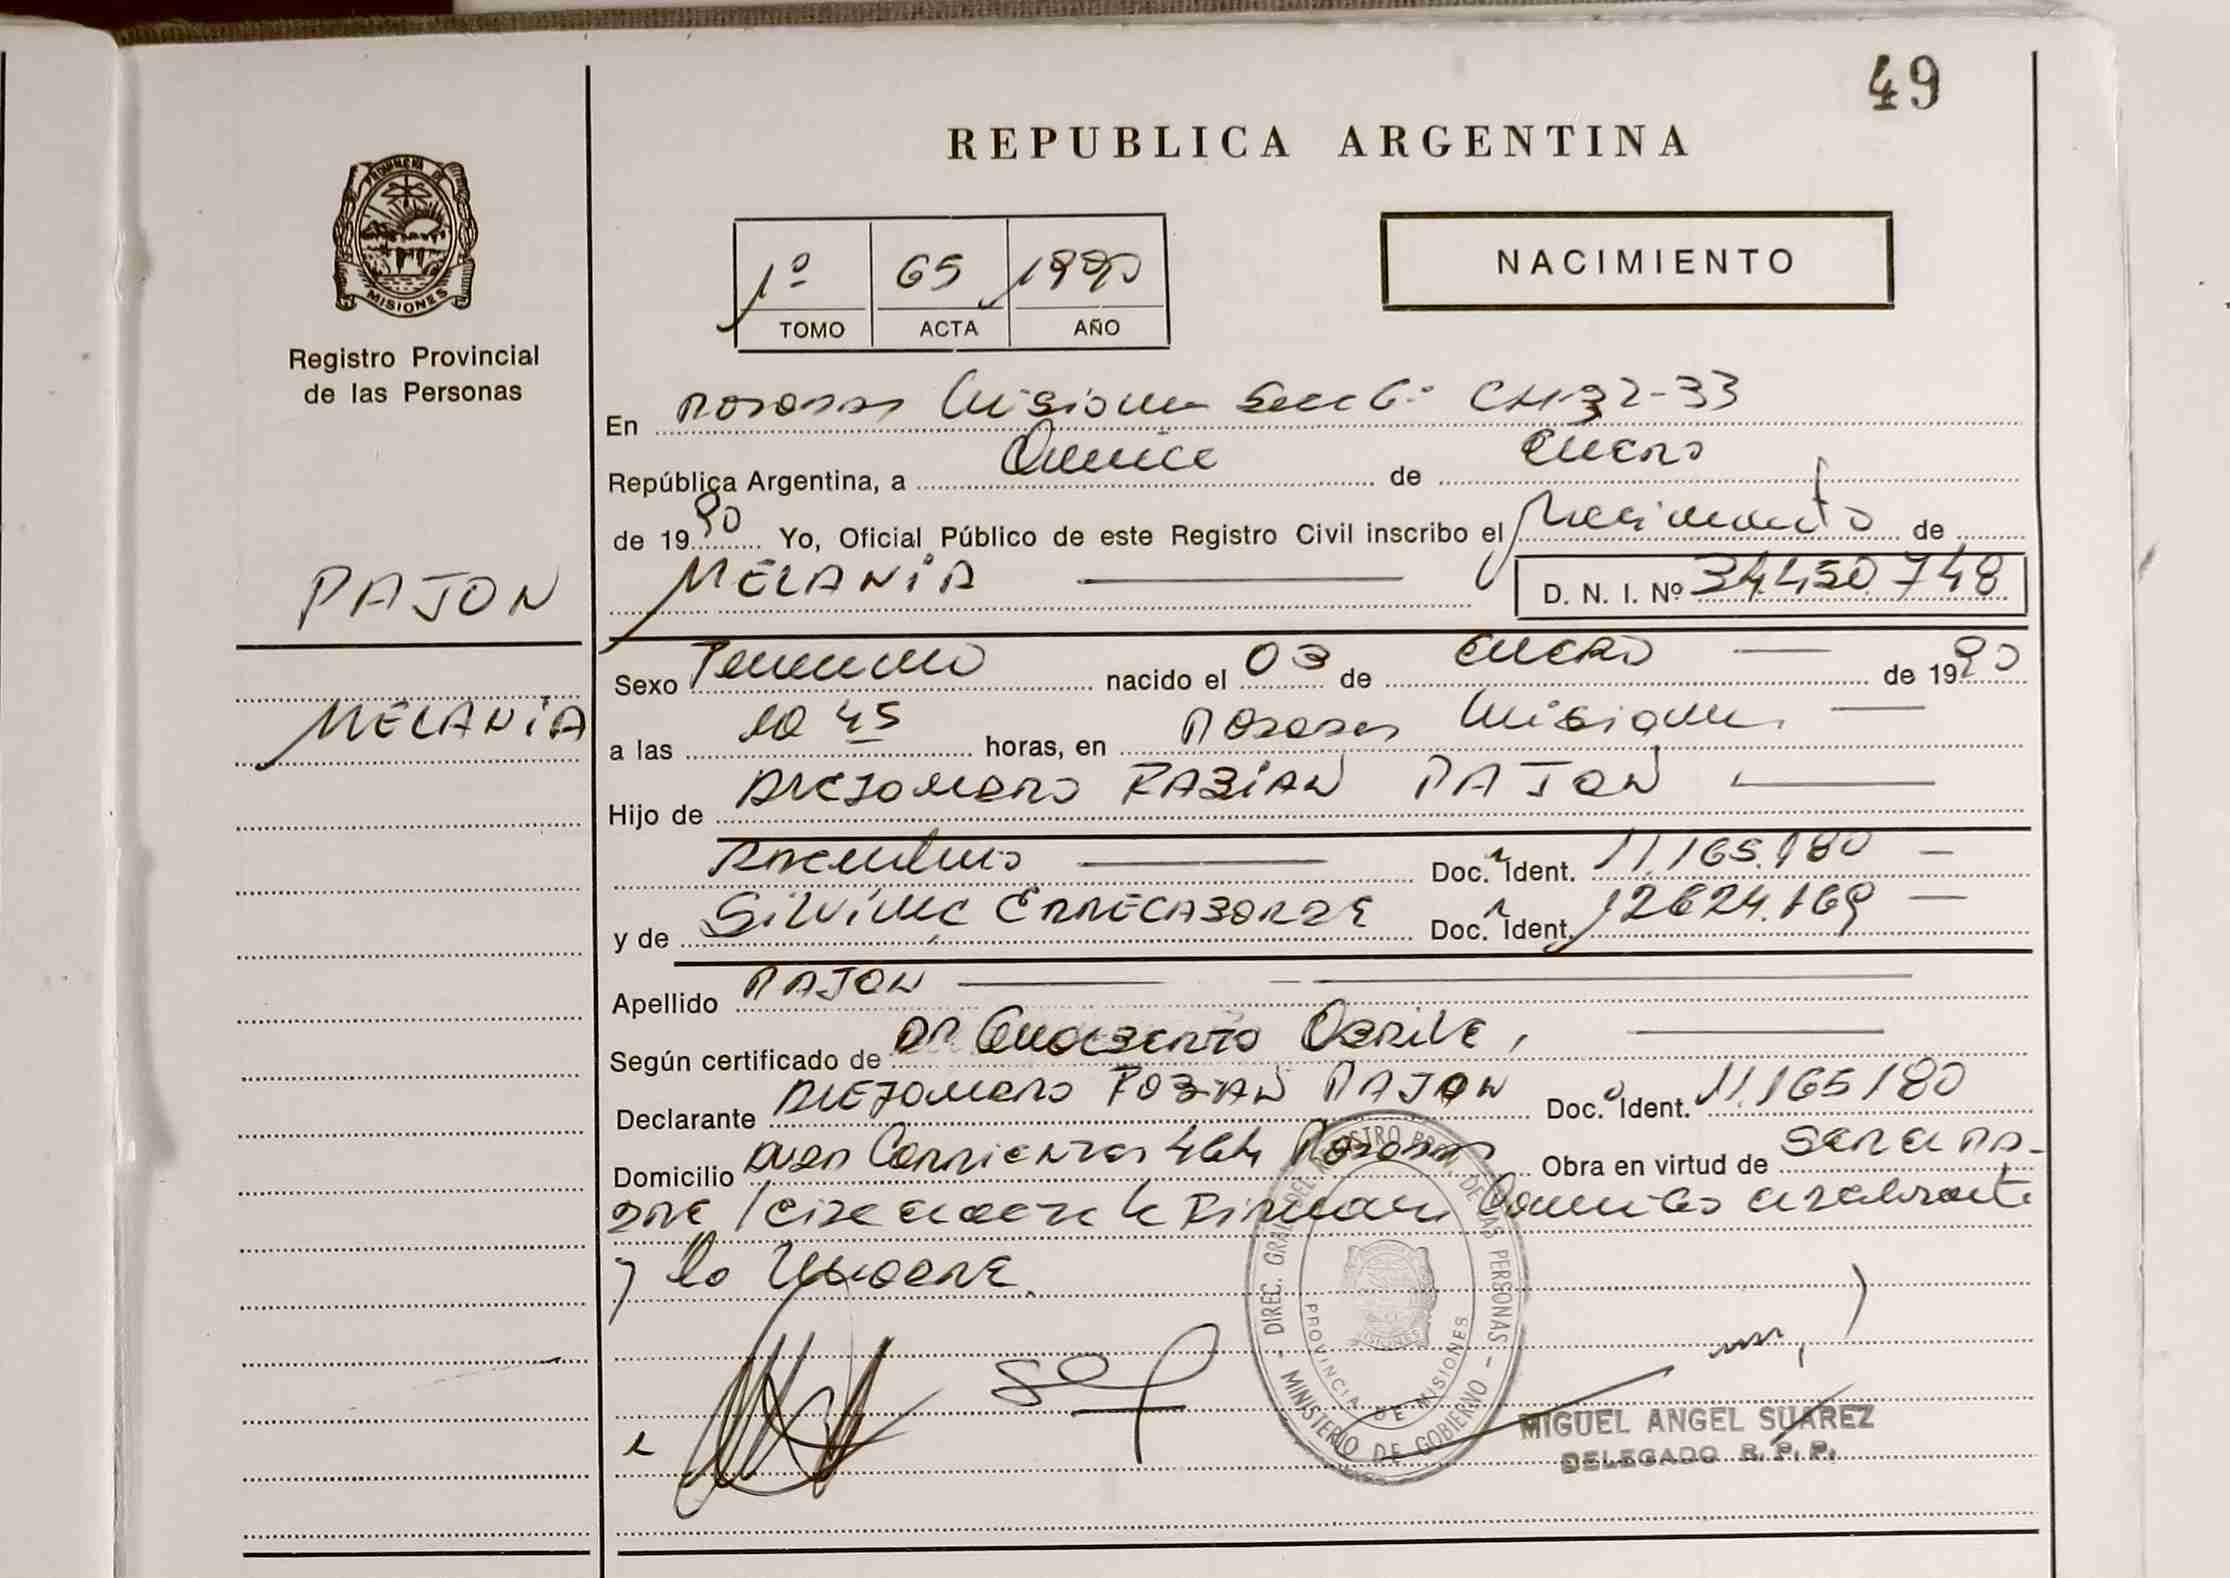 49
REPUBLICA ARGENTINA
PROVINCIA DE
MISIONES
Registro Provincial
de las Personas
1º 65 1990
TOMO ACTA AÑO
NACIMIENTO
En Posadas Misiones Secc 6º CH 32-33
República Argentina, a Quince de Enero
de 1990 Yo, Oficial Público de este Registro Civil inscribo el Nacimiento de
MELANIA D. N. I. Nº 34.450.748
PAJON
MELANIA
Sexo Femenino nacido el 03 de Enero de 1990
a las 10 45 horas, en Posadas Misiones
Hijo de FABIAN PAJON
Argentino Doc. Ident. 11.165.180
y de Silvina ERRECABORDE Doc. Ident. 12624.169
Apellido PAJON
Según certificado de Dr
Declarante FABIAN PAJON Doc. Ident. 11.165180
Domicilio Corrientes 464 Posadas Obra en virtud de Ser el Pa-
dre Firman declarante
y la Madre.
DIREC. GRAL. DEL REGISTRO PROV. DE LAS PERSONAS - MINISTERIO DE GOBIERNO -
PROVINCIA DE MISIONES
MIGUEL ANGEL SUAREZ
DELEGADO R. P. P.